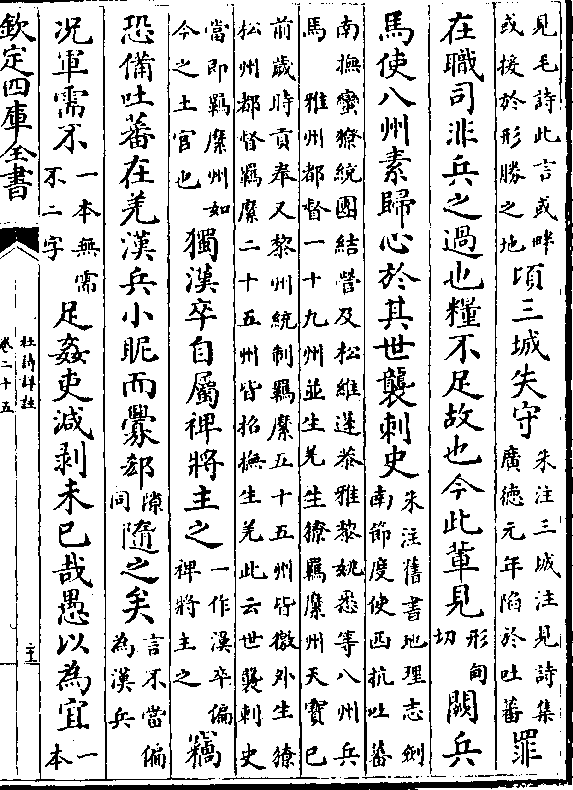 見毛詩此言或畔或接於形勝之地頃三城失守朱注三城注見詩集廣德元年陷於吐蕃罪
在職司非兵之過也糧不足故也今此輩見形甸切闕兵
馬使八州素歸心於其世襲刺史朱注舊書地理志劍南節度使西抗吐蕃
南撫蠻獠統團結營及松維蓬恭雅黎姚悉等八州兵
馬 雅州都督一十九州並生羌生獠羈縻州天寶已
前歲時貢奉又黎州統制羈縻五十五州皆徼外生獠
松州都督羈縻二十五州皆招撫生羌此云世襲刺史
當即羈縻州如今之土官也獨漢卒自屬裨將主之一作漢卒偏裨將主之竊
恐備吐蕃在羌漢兵小昵而釁郄隙同隨之矣言不當偏為漢兵
況軍需不一本無需不二字足姦吏減剥未已哉愚以為宜一本
欽定四庫全書
杜詩詳註
卷二十五